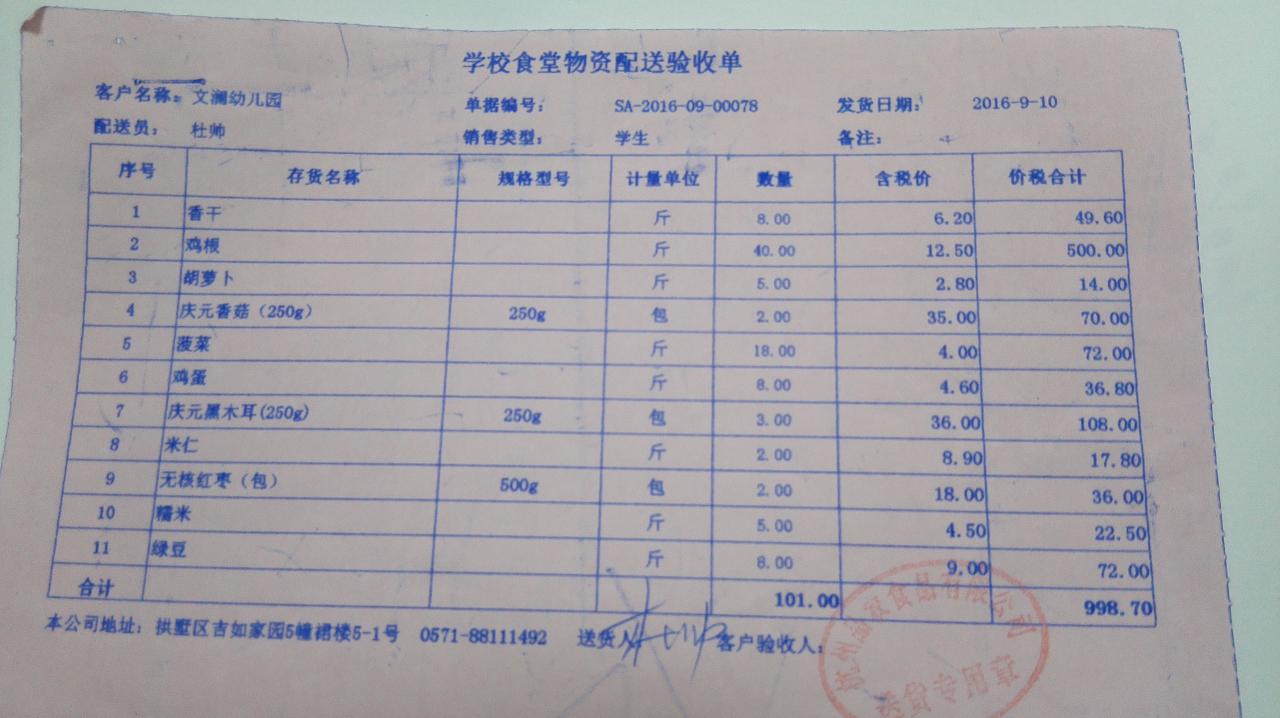 学校食堂物资配送验收单
客户名称：文澜幼儿园 单据编号： SA-2016-09-00078 发货日期： 2016-9-10
配送员： 杜帅 销售类型： 学生 备注：
序号 存货名称 规格型号 计量单位 数量 含税价 价税合计
1 香干 斤 8.00 6.20 49.60
2 鸡根 斤 40.00 12.50 500.00
3 胡萝卜 斤 5.00 2.80 14.00
4 庆元香菇（250g） 250g 包 2.00 35.00 70.00
5 菠菜 斤 18.00 4.00 72.00
6 鸡蛋 斤 8.00 4.60 36.80
7 庆元黑木耳(250g) 250g 包 3.00 36.00 108.00
8 米仁 斤 2.00 8.90 17.80
9 无核红枣（包） 500g 包 2.00 18.00 36.00
10 糯米 斤 5.00 4.50 22.50
11 绿豆 斤 8.00 9.00 72.00
合计 101.00 998.70
本公司地址：拱墅区吉如家园5幢裙楼5-1号 0571-88111492 送货人 客户验收人：
食品有限公司
送货专用章